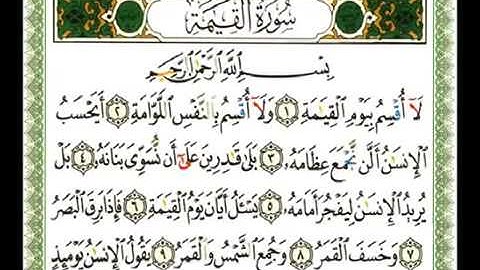 سُورَةُ الْقِيَمَةِ
بِسْمِ اللَّهِ الرَّحْمَٰنِ الرَّحِيمِ
لَا أُقْسِمُ بِيَوْمِ الْقِيَٰمَةِ ١ وَلَا أُقْسِمُ بِالنَّفْسِ اللَّوَّامَةِ ٢ أَيَحْسَبُ
الْإِنسَٰنُ أَلَّن نَّجْمَعَ عِظَامَهُ ٣ بَلَىٰ قَٰدِرِينَ عَلَىٰ أَن نُّسَوِّيَ بَنَانَهُ ٤ بَلْ
يُرِيدُ الْإِنسَٰنُ لِيَفْجُرَ أَمَامَهُ ٥ يَسْـَٔلُ أَيَّانَ يَوْمُ الْقِيَٰمَةِ ٦ فَإِذَا بَرِقَ الْبَصَرُ
٧ وَخَسَفَ الْقَمَرُ ٨ وَجُمِعَ الشَّمْسُ وَالْقَمَرُ ٩ يَقُولُ الْإِنسَٰنُ يَوْمَئِذٍ